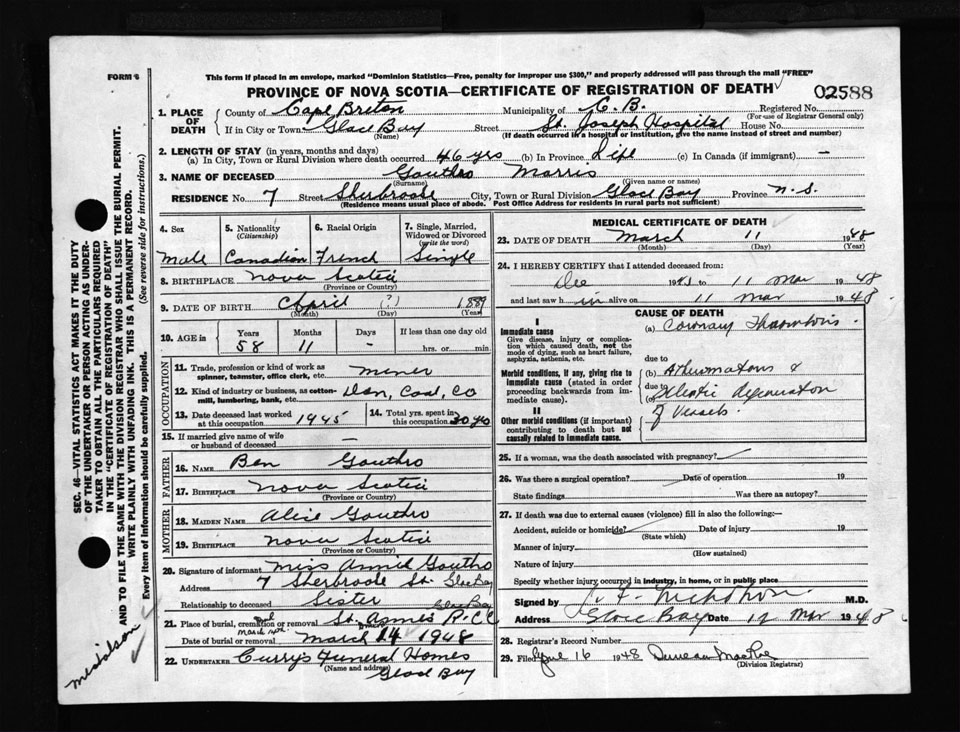 FORM 6
This form if placed in an envelope, marked "Dominion Statistics—Free, penalty for improper use $300," and properly addressed will pass through the mail "FREE"
PROVINCE OF NOVA SCOTIA—CERTIFICATE OF REGISTRATION OF DEATH
02588
1. PLACE OF DEATH
County of Cape Breton Municipality of C. B. Registered No.
(For use of Registrar General only)
If in City or Town Glace Bay Street St. Joseph Hospital House No.
(Name) (If death occurred in a hospital or institution, give the name instead of street and number)
2. LENGTH OF STAY (in years, months and days)
(a) In City, Town or Rural Division where death occurred 46 yrs (b) In Province Life (c) In Canada (if immigrant) —
3. NAME OF DECEASED Gouthro Morris
(Surname) (Given name or names)
RESIDENCE No. 7 Street Sherbrooke City, Town or Rural Division Glace Bay Province N. S.
(Residence means usual place of abode. Post Office Address for residents in rural parts not sufficient)
4. Sex
Male
5. Nationality
(Citizenship)
Canadian
6. Racial Origin
French
7. Single, Married, Widowed or Divorced
(write the word)
Single
8. BIRTHPLACE Nova Scotia
(Province or Country)
9. DATE OF BIRTH April (?) 1889
(Month) (Day) (Year)
10. AGE in
Years Months Days If less than one day old
58 11 - hrs. or min
OCCUPATION
11. Trade, profession or kind of work as miner
spinner, teamster, office clerk, etc.
12. Kind of industry or business, as cotton- Dom, Coal, Co
mill, lumbering, bank, etc.
13. Date deceased last worked at this occupation 1945
14. Total yrs. spent in this occupation 30 yrs
15. If married give name of wife or husband of deceased —
FATHER
16. NAME Ben Gouthro
17. BIRTHPLACE Nova Scotia
(Province or Country)
MOTHER
18. MAIDEN NAME Alice Gouthro
19. BIRTHPLACE Nova Scotia
(Province or Country)
20. Signature of informant Miss Annie Gouthro
Address 7 Sherbrooke St. Glace Bay
Relationship to deceased Sister
Glace Bay
21. Place of burial, cremation or removal St. Agnes R.C.C
Date of burial or removal March 14 1948
22. UNDERTAKER Curry's Funeral Homes
(Name and address)
Glace Bay
MEDICAL CERTIFICATE OF DEATH
23. DATE OF DEATH March 11 1948
(Month) (Day) (Year)
24. I HEREBY CERTIFY that I attended deceased from:
Dec to 11 Mar 1948
and last saw h im alive on 11 Mar 1948
CAUSE OF DEATH
I
Immediate cause
Give disease, injury or complication which caused death, not the mode of dying, such as heart failure, asphyxia, asthenia, etc.
(a) Coronary Thrombosis
due to
Morbid conditions, if any, giving rise to immediate cause (stated in order proceeding backwards from immediate cause).
(b) Atheromatous &
due to
(c) Sclerotic degeneration
of Vessels
II
Other morbid conditions (if important) contributing to death but not causally related to immediate cause.
25. If a woman, was the death associated with pregnancy?
26. Was there a surgical operation? Date of operation 19
State findings Was there an autopsy?
27. If death was due to external causes (violence) fill in also the following:—
Accident, suicide or homicide? Date of injury 19
(State which)
Manner of injury
(How sustained)
Nature of injury
Specify whether injury occurred in industry, in home, or in public place
Signed by M.D.
Address Glace Bay Date 12 Mar 1948
28. Registrar's Record Number
29. Filed June 16 1948 Duncan MacRae
(Division Registrar)
SEC. 46—VITAL STATISTICS ACT MAKES IT THE DUTY
OF THE UNDERTAKER OR PERSON ACTING AS UNDER-
TAKER TO OBTAIN ALL THE PARTICULARS REQUIRED
IN THE "CERTIFICATE OF REGISTRATION OF DEATH"
AND TO FILE THE SAME WITH THE DIVISION REGISTRAR WHO SHALL ISSUE THE BURIAL PERMIT.
WRITE PLAINLY WITH UNFADING INK. THIS IS A PERMANENT RECORD.
Every item of information should be carefully supplied. (See reverse side for instructions.)